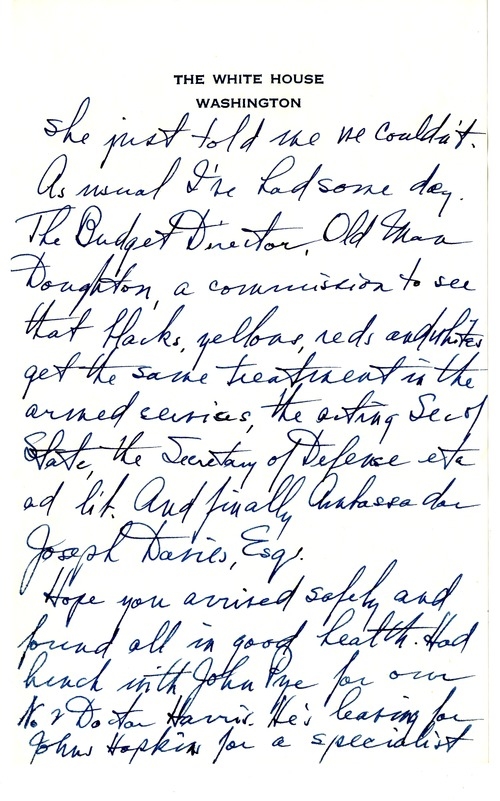 THE WHITE HOUSE
WASHINGTON
she just told me we couldn't.
As usual I've had some day.
The Budget Director, Old Man
Doughton, a commission to see
that blacks, yellows, reds and whites
get the same treatment in the
armed services, the acting Sec of
State, the Secretary of Defense etc
ad lib. And finally Ambassador
Joseph Davies, Esq.
Hope you arrived safely and
found all in good health. Had
lunch with John Pye for our
No 2 Doctor Harris. He's leaving for
Johns Hopkins for a specialist